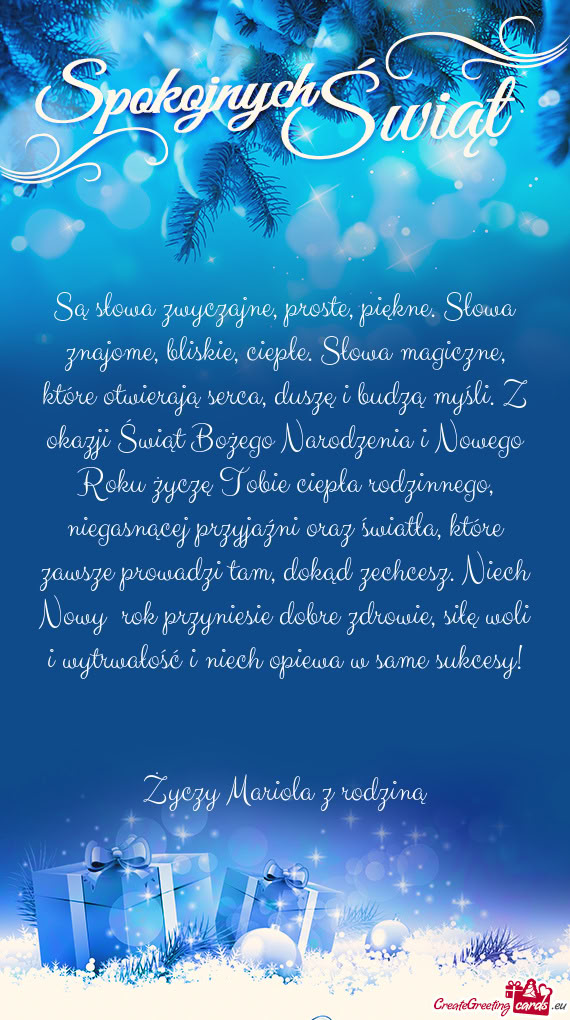 Spokojnych Świąt
Są słowa zwyczajne, proste, piękne. Słowa
znajome, bliskie, ciepłe. Słowa magiczne,
które otwierają serca, duszę i budzą myśli. Z
okazji Świąt Bożego Narodzenia i Nowego
Roku życzę Tobie ciepła rodzinnego,
niegasnącej przyjaźni oraz światła, które
zawsze prowadzi tam, dokąd zechcesz. Niech
Nowy  rok przyniesie dobre zdrowie, siłę woli
i wytrwałość i niech opiewa w same sukcesy!
Życzy Mariola z rodziną
CreateGreetingcards.eu